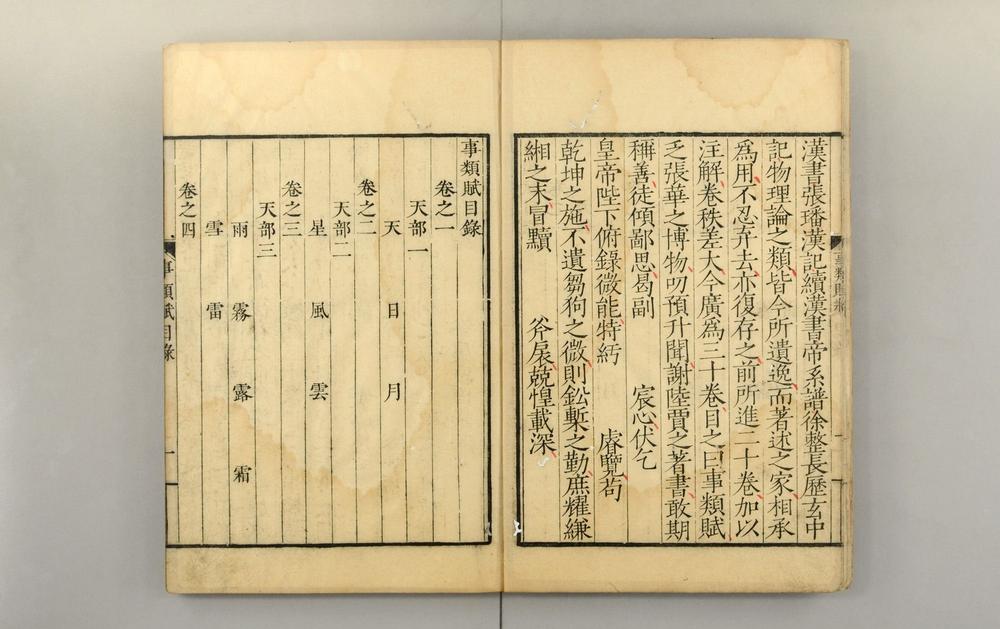 漢書張璠漢記續漢書帝系譜徐整長歷玄中
記物理論之類皆今所遺逸而著述之家相承
為用不忍弃去亦復存之前所進二十卷加以
注解卷秩差大今廣為三十卷目之曰事類賦
之張華之博物叨預升聞謝陸賈之著書敢期
稱善徒傾鄙思曷副 宸心伏乞
皇帝陛下俯錄微能特紆 睿覽茍
乾坤之施不遺芻狗之微則鈆槧之勤庶耀縑
緗之末冒黷 斧扆兢惶載深
事類賦目錄
卷之一
天部一
天 日 月
卷之二
天部二
星 風 雲
卷之三
天部三
雨 霧 露 霜
雪 雷
卷之四
事類賦目錄 一